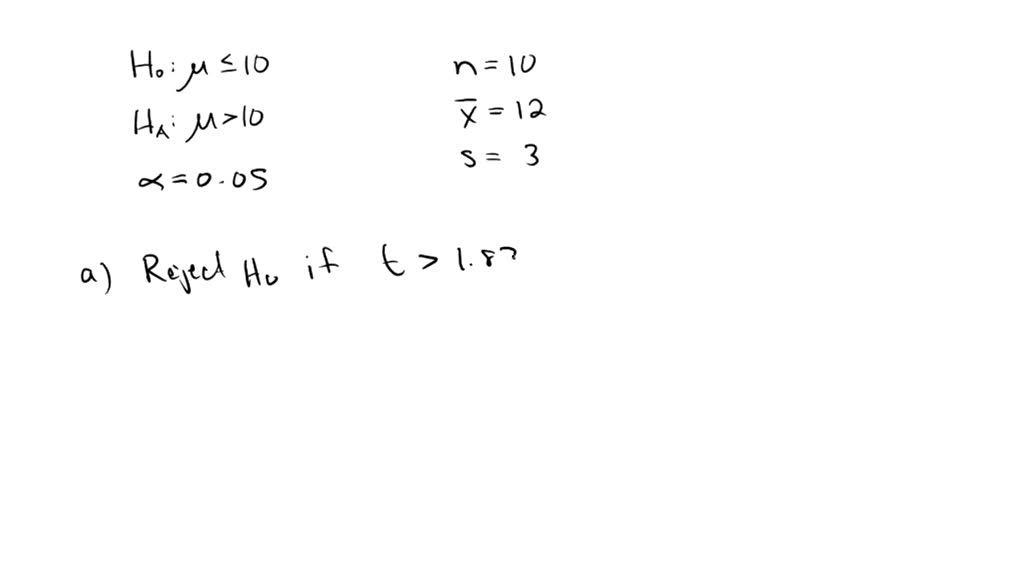 H₀: μ ≤ 10
H_A: μ > 10
α = 0.05
n = 10
x̄ = 12
s = 3
a) Reject H₀ if t >